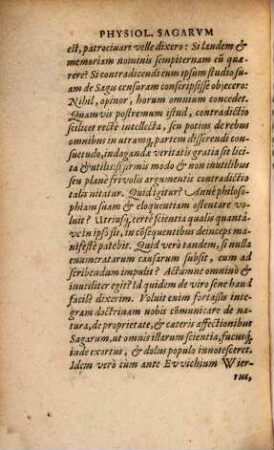 PHYSIOL. SAGARVM
est, patrocinari velle dixero: Si laudem &
memoriam nominis sempiternam eũ quæ-
rere? Si contradicendi eum ipsum studio suam
de Sagis censuram conscripsisse objecero:
Nihil, opinor, horum omnium concedet.
Quamvis postremum istud, contradictio
scilicet rectè intellecta, seu potius de rebus
omnibus in utramq, partem disserendi con-
suetudo, indagandæ veritatis gratiâ sit lici-
ta & utilis: si formis modo & non inutilibus
seu planè frivolis argumentis contradictio
talis nitatur. Quid igitur? Anne philoso-
phiam suam & eloquentiam ostentare vo-
luit? Utriusq, certè scientia qualis quantá-
ve in ipso sit, in cõsequentibus deinceps ma-
nifestè patebit. Quid verò tandem, si nulla
enumeratarum causarum subsit, eum ad
scribendum impulit? Actumne omninò &
inutiliter egit? Id quidem de viro sene haud
facilè dixerim. Voluit enim fortassis integram
doctrinam nobis cõmunicare de na-
tura, de proprietate, & cæteris affectionibus
Sagarum, ut omnis istarum scientia, fucusq,
inde exortus, & dolus populo innotesceret.
Idem verò cùm ante Evvichium Wier-
rus,